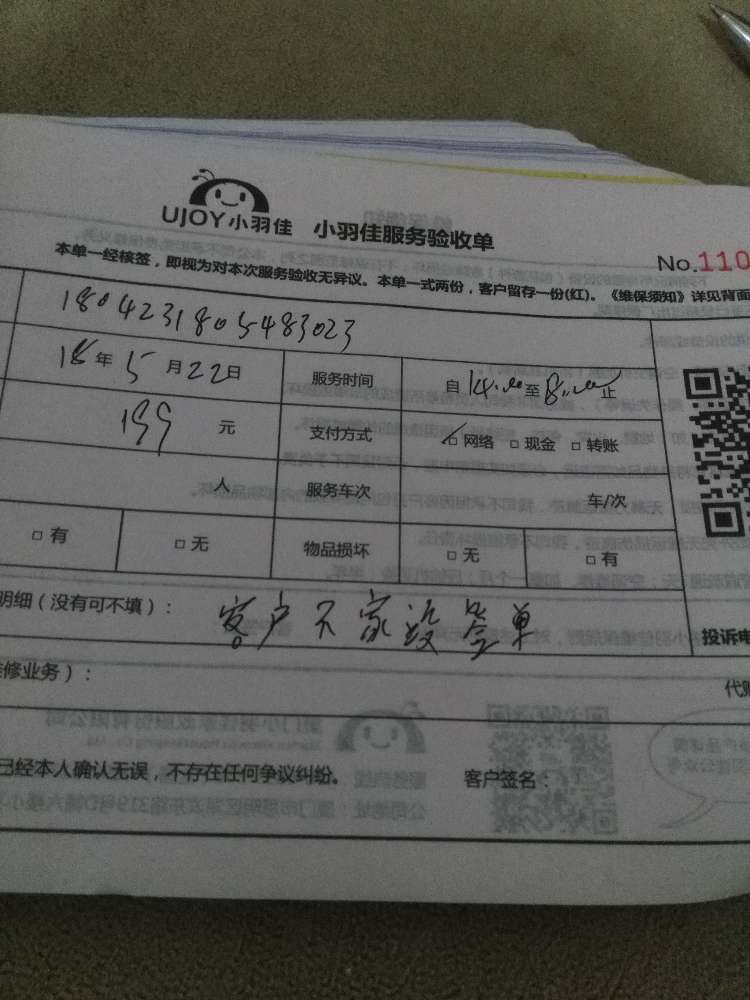 UJOY小羽佳 小羽佳服务验收单
No.110
本单一经核签，即视为对本次服务验收无异议。本单一式两份，客户留存一份(红)。《维保须知》详见背面
1804231805483023
18年5月22日 服务时间 自14:00至8:00止
199元 支付方式 ☑网络 □现金 □转账
人 服务车次 车/次
□有 □无 物品损坏 □无 □有
明细（没有可不填）： 客户不家没签单
投诉电
修业务）：
代购
已经本人确认无误，不存在任何争议纠纷。 客户签名：